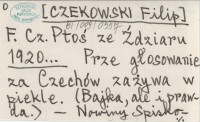 [CZEKOWSKI Filip]
F. Cz. Ptoś ze Ździaru
1920... Prze głosowanie
za Czechów zażywa w
piekle. (Bajka, ale i praw-
da.) — Nowiny Spisko-